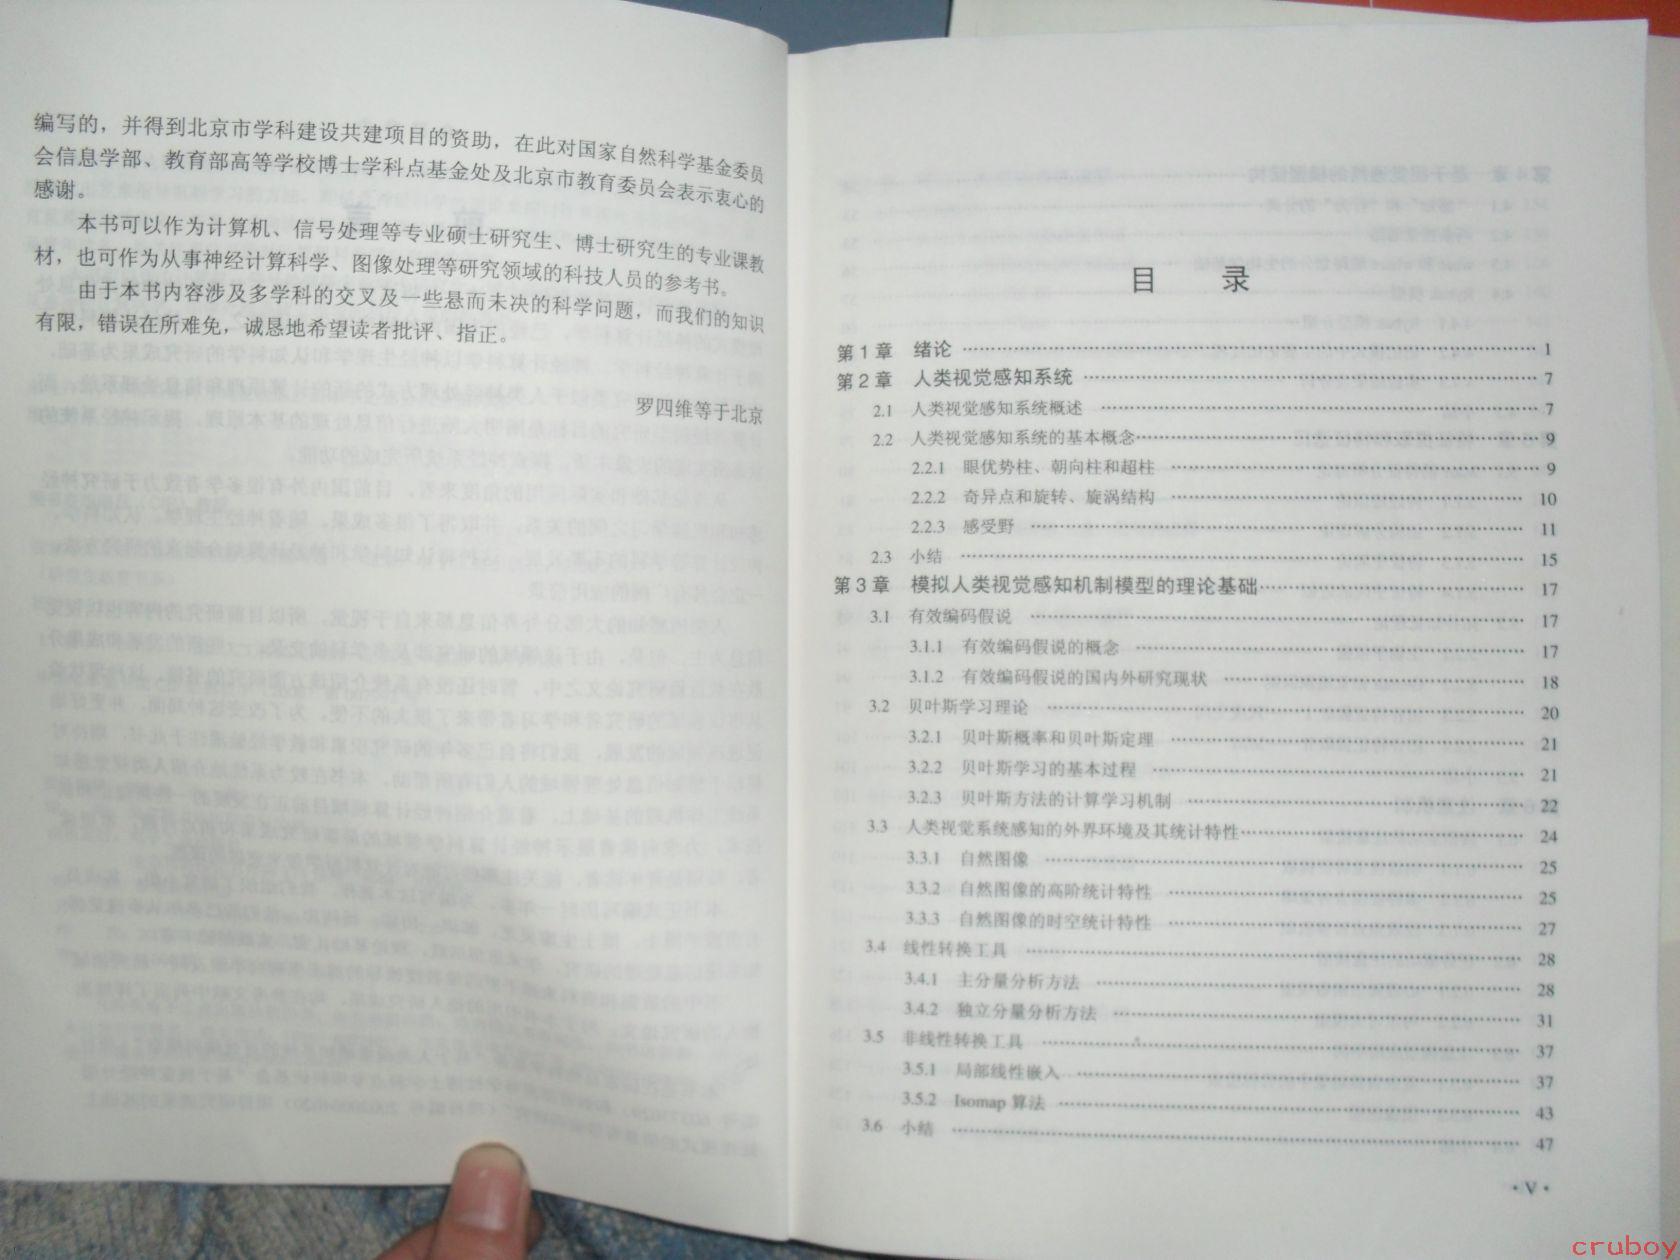 编写的，并得到北京市学科建设共建项目的资助，在此对国家自然科学基金委员
会信息学部、教育部高等学校博士学科点基金处及北京市教育委员会表示衷心的
感谢。
本书可以作为计算机、信号处理等专业硕士研究生、博士研究生的专业课教
材，也可作为从事神经计算科学、图像处理等研究领域的科技人员的参考书。
由于本书内容涉及多学科的交叉及一些悬而未决的科学问题，而我们的知识
有限，错误在所难免，诚恳地希望读者批评、指正。
罗四维等于北京
目 录
第1章 绪论 1
第2章 人类视觉感知系统 7
2.1 人类视觉感知系统概述 7
2.2 人类视觉感知系统的基本概念 9
2.2.1 眼优势柱、朝向柱和超柱 9
2.2.2 奇异点和旋转、旋涡结构 10
2.2.3 感受野 11
2.3 小结 15
第3章 模拟人类视觉感知机制模型的理论基础 17
3.1 有效编码假说 17
3.1.1 有效编码假说的概念 17
3.1.2 有效编码假说的国内外研究现状 18
3.2 贝叶斯学习理论 20
3.2.1 贝叶斯概率和贝叶斯定理 21
3.2.2 贝叶斯学习的基本过程 21
3.2.3 贝叶斯方法的计算学习机制 22
3.3 人类视觉系统感知的外界环境及其统计特性 24
3.3.1 自然图像 25
3.3.2 自然图像的高阶统计特性 25
3.3.3 自然图像的时空统计特性 27
3.4 线性转换工具 28
3.4.1 主分量分析方法 28
3.4.2 独立分量分析方法 31
3.5 非线性转换工具 37
3.5.1 局部线性嵌入 37
3.5.2 Isomap 算法 43
3.6 小结 47
·V·
cruboy